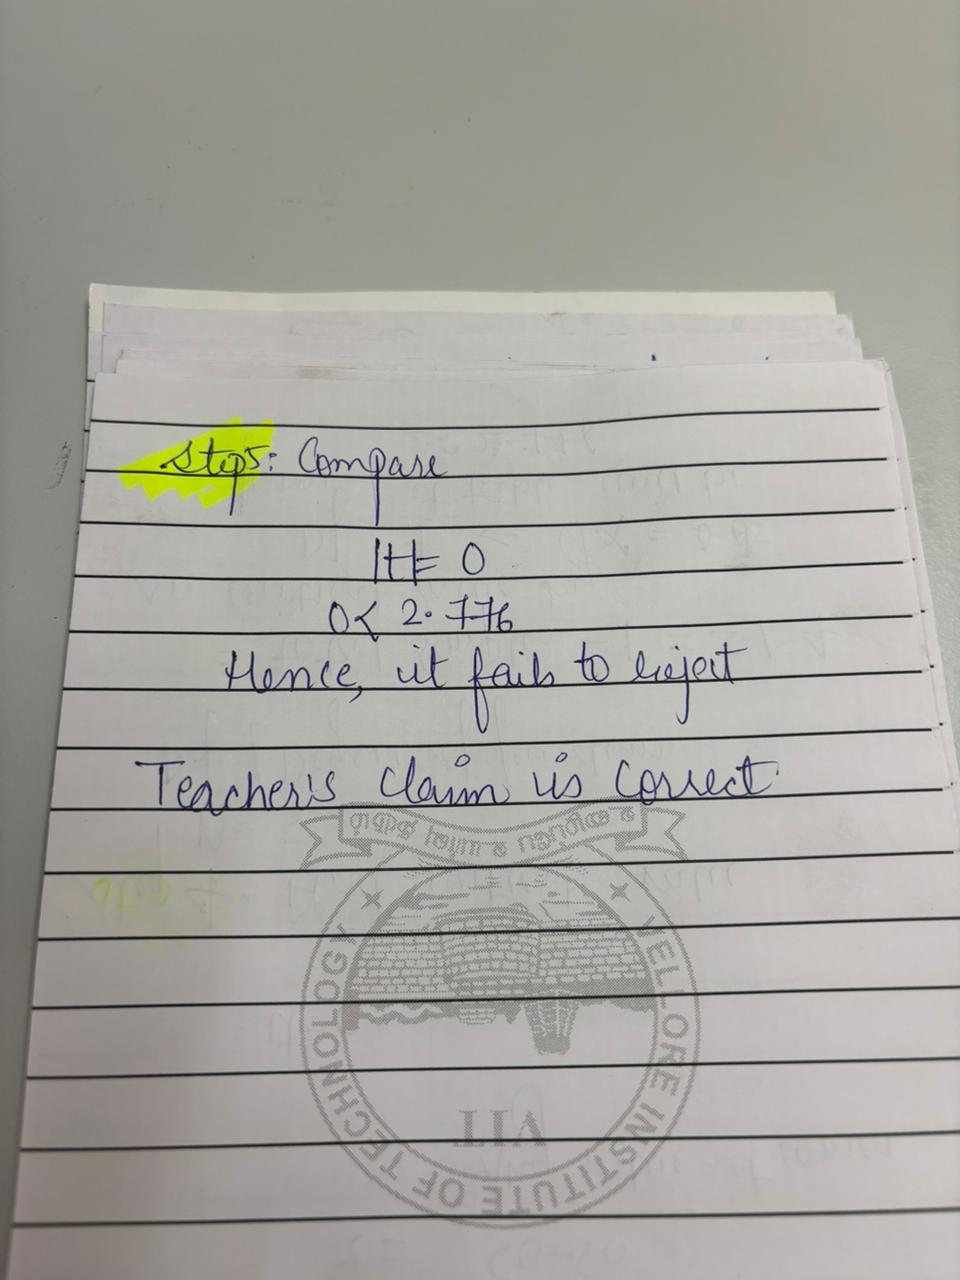 Step5: Compare
|t|= 0
0< 2.776
Hence, it fails to reject
Teacher's Claim is Correct
VELLORE INSTITUTE OF TECHNOLOGY
VIT